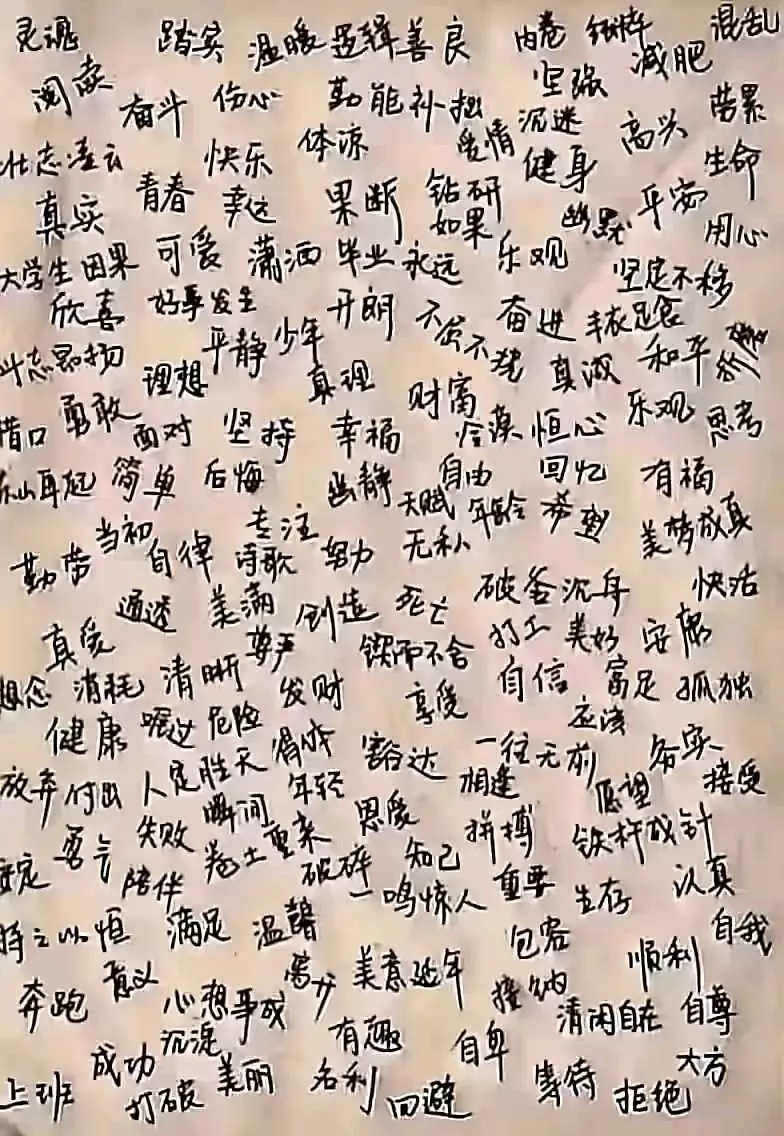 灵魂 踏实 温暖 逻辑 善良 内卷 纯粹 混乱
阅读 奋斗 伤心 勤能补拙 坚强 减肥
壮志凌云 快乐 体谅 爱情 沉迷 高兴 劳累
真实 青春 幸运 果断 钻研 健身 生命
如果 幽默 平安 用心
大学生 因果 可爱 潇洒 毕业 永远 乐观 坚定不移
欣喜 好事发生 开朗 不屈不挠 奋进 丰衣足食
斗志昂扬 平静 少年 真诚 和平
理想 真理 财富 乐观
借口 勇敢 面对 坚持 幸福 冷漠 恒心 思考
东山再起 简单 后悔 幽静 自由 回忆 有福
当初 专注 天赋 年龄 美梦成真
勤劳 自律 诗歌 努力 无私
通透 美满 创造 死亡 破釜沉舟 快活
真爱 尊严 锲而不舍 打工 美好 安康
想念 消耗 清晰 发财 享受 自信 富足 孤独
健康 危险 得体 豁达 一往无前 应该 务实
放弃 付出 人定胜天 年轻 相逢 愿望 接受
勇气 失败 瞬间 卷土重来 恩爱 拼搏 铁杵成针
陪伴 破碎 知己 重要 生存 认真
持之以恒 满足 温馨 一鸣惊人 包容 自我
奔跑 意义 心想事成 离别 美意延年 接纳 顺利
沉淀 有趣 清闲自在 自尊
上班 成功 打破 美丽 名利 回避 自卑 等待 拒绝 大方